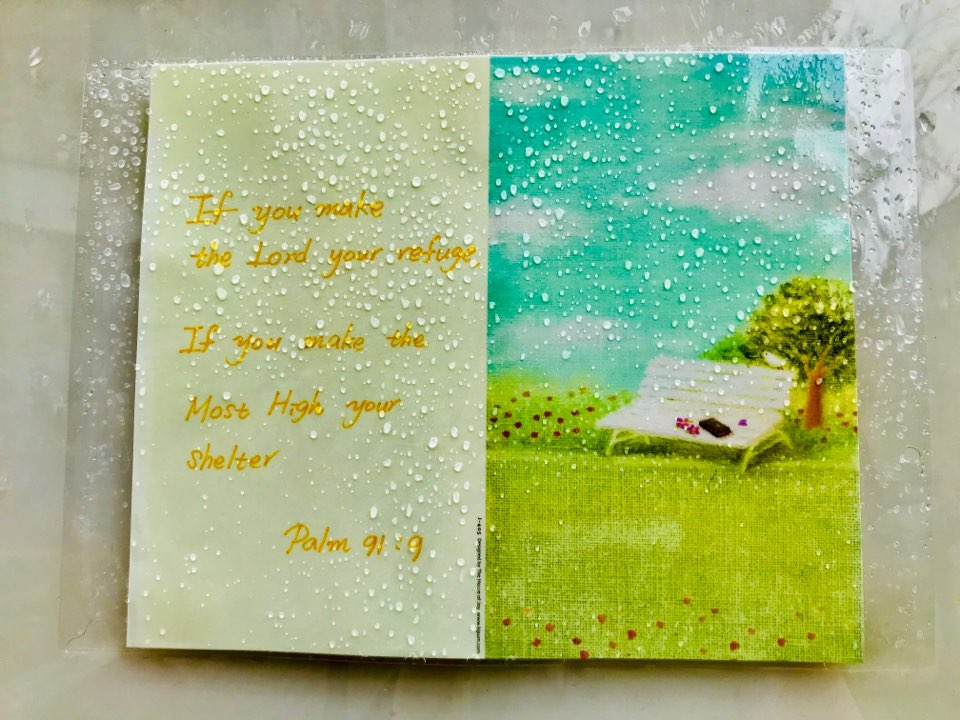 If you make
the Lord your refuge,
If you make the
Most High your
shelter
Palm 91:9
Designed by The House of Joy